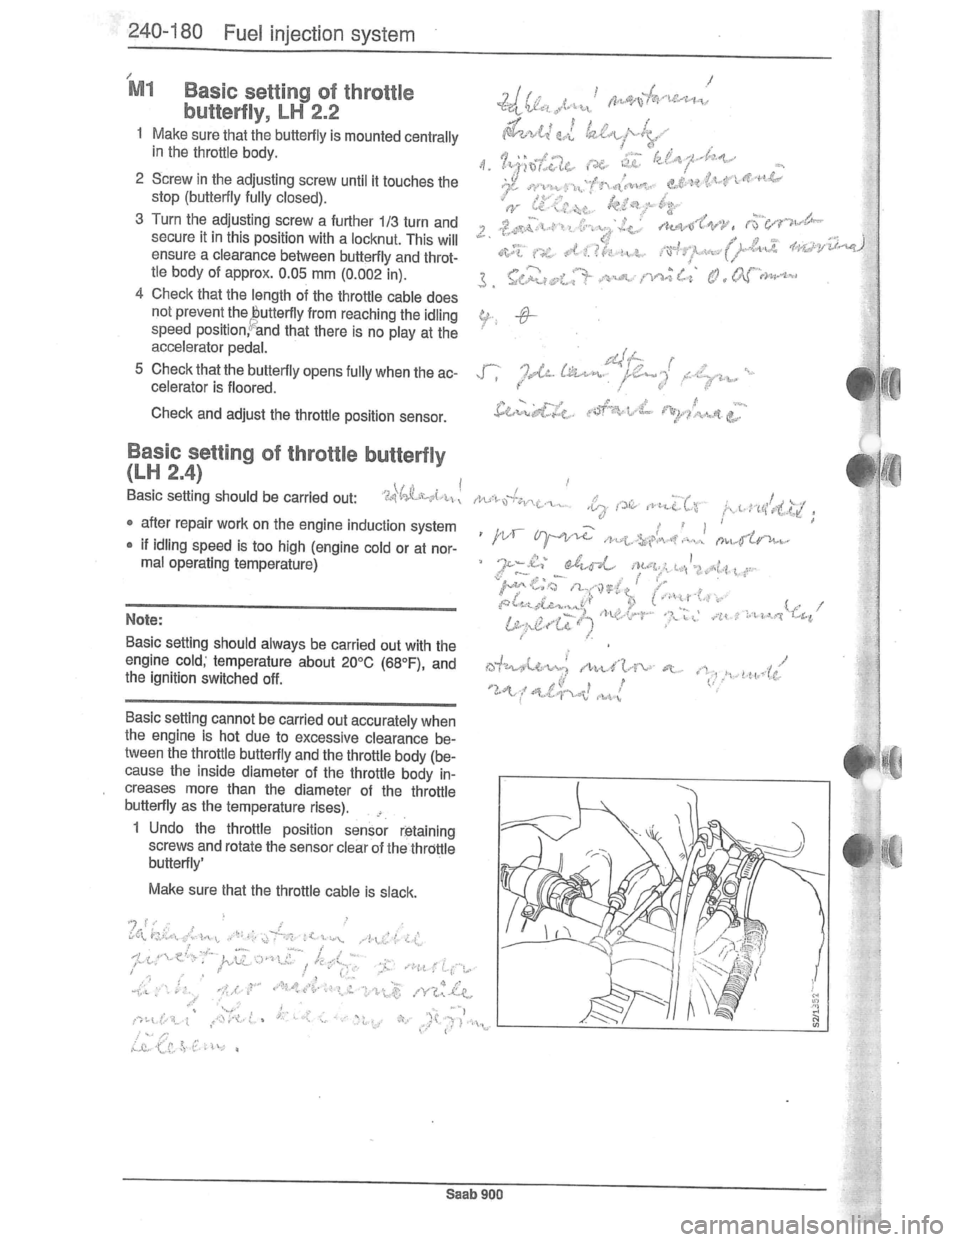 240-180 Fuel injection system
M1 Basic setting of throttle
butterfly, LH 2.2
1 Make sure that the butterfly is mounted centrally
in the throttle body.
2 Screw in the adjusting screw until it touches the
stop (butterfly fully closed).
3 Turn the adjusting screw a further 1/3 turn and
secure it in this position with a locknut. This will
ensure a clearance between butterfly and throt-
tle body of approx. 0.05 mm (0.002 in).
4 Check that the length of the throttle cable does
not prevent the butterfly from reaching the idling
speed position, and that there is no play at the
accelerator pedal.
5 Check that the butterfly opens fully when the ac-
celerator is floored.
Check and adjust the throttle position sensor.
Základní nastavení
škrtící klapky
1. Zjistěte se že klapka
je centrovaně
v tělese klapky
2. nastav. šroub
až se dotkne
3. Seřidit na 0.05 mm
4.
5.
Basic setting of throttle butterfly
(LH 2.4)
Basic setting should be carried out:
• after repair work on the engine induction system
• if idling speed is too high (engine cold or at nor-
mal operating temperature)
základní nastavení by se mělo provádět:
• po opravě motoru
• je-li chod naprázdno
příliš vysoký (motor
studený nebo při normální
teplotě)
Note:
Basic setting should always be carried out with the
engine cold; temperature about 20°C (68°F), and
the ignition switched off.
studený motor a vypnuté
zapalování
Basic setting cannot be carried out accurately when
the engine is hot due to excessive clearance be-
tween the throttle butterfly and the throttle body (be-
cause the inside diameter of the throttle body in-
creases more than the diameter of the throttle
butterfly as the temperature rises).
1 Undo the throttle position sensor retaining
screws and rotate the sensor clear of the throttle
butterfly'
Make sure that the throttle cable is slack.
Základní nastavení nelze
provést přesně, když je motor
horký pro nadměrné vůle
mezi škrt. klapkou a jejím
tělesem.
S2/1352
Saab 900
carmanualsonline.info